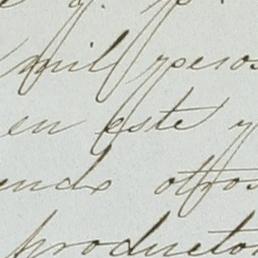 mil pesos
en este y
endo otros
productor